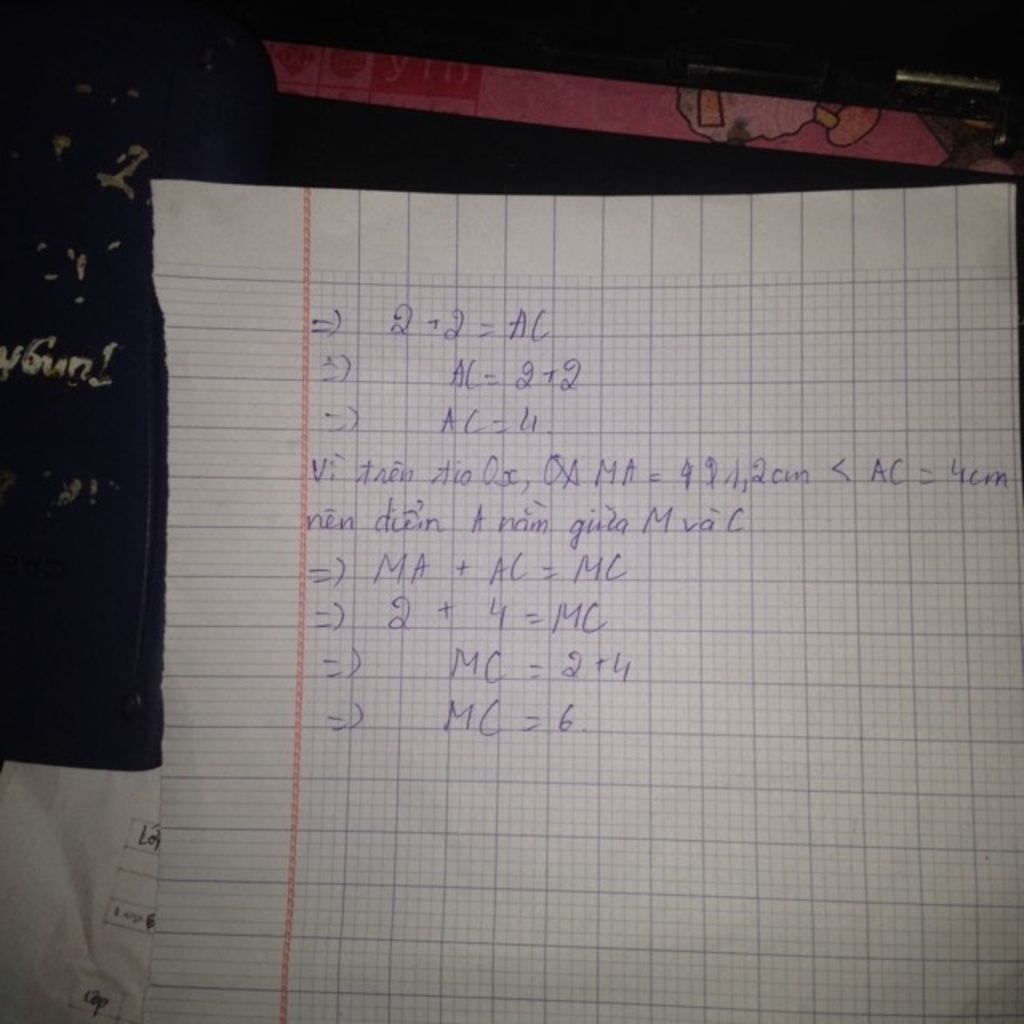 =) 2 + 2 = AC
=) AC = 2 + 2
=) AC = 4.
Vì trên tia Ox, MA = 2cm < AC = 4cm
nên điểm A nằm giữa M và C
=) MA + AC = MC
=) 2 + 4 = MC
=) MC = 2 + 4
=) MC = 6.
Lớp